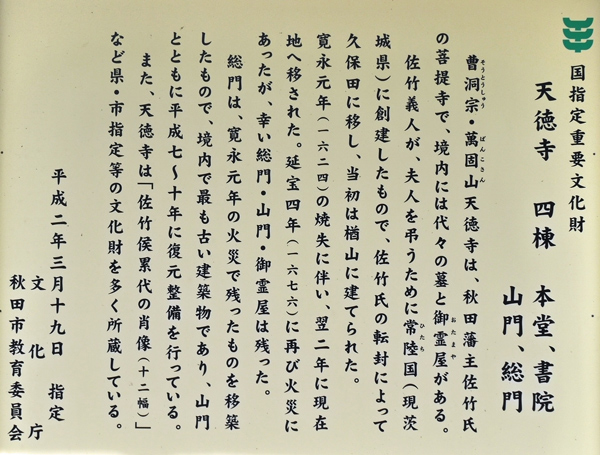 国指定重要文化財
天徳寺 四棟 本堂、書院
山門、総門
曹洞宗・萬固山天徳寺は、秋田藩主佐竹氏
そうとうしゅう ばんこさん
の菩提寺で、境内には代々の墓と御霊屋がある。
おたまや
佐竹義人が、夫人を弔うために常陸国(現茨
ひたち
城県)に創建したもので、佐竹氏の転封によって
久保田に移し、当初は楢山に建てられた。
寛永元年(一六二四)の焼失に伴い、翌二年に現在
地へ移された。延宝四年(一六七六)に再び火災に
あったが、幸い総門・山門・御霊屋は残った。
総門は、寛永元年の火災で残ったものを移築
したもので、境内で最も古い建築物であり、山門
とともに平成七〜十年に復元整備を行っている。
また、天徳寺は「佐竹侯累代の肖像(十二幅)」
など県・市指定等の文化財を多く所蔵している。
平成二年三月十九日 指定
文化庁
秋田市教育委員会